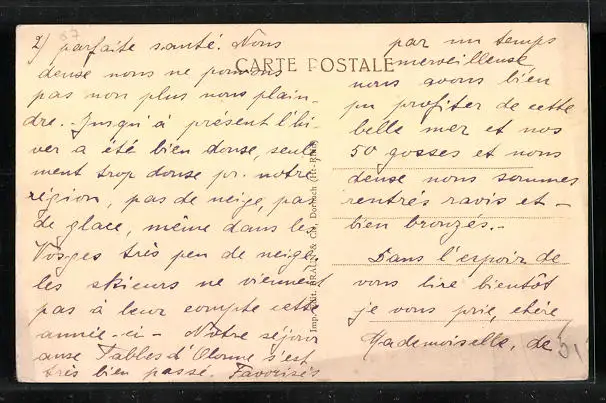 2) parfaite santé. Nous
deuse nous ne pouvons
pas non plus nous plain-
dre.- Jusqu'à présent l'hi-
ver a été bien douse, seule-
ment trop douse pr. notre
région, pas de neige, pas
de glace, même dans les
Vosges très peu de neige
les skieurs ne viennent
pas à leur compte cette
année-ci - Notre séjour
anse Tables d'Olonne s'est
très bien passé. Favorisés
CARTE POSTALE
Imp. Edit. BRAUN & Cie, Dornach (Ht-Rhin)
par un temps
merveilleuse,
nous avons bien
pu profiter de cette
belle mer et nos
50 gosses et nous
deuse nous sommes
rentrés ravis et -
bien bronzés.-
Dans l'espoir de
vous lire bientôt
je vous prie, chère
Mademoiselle, de